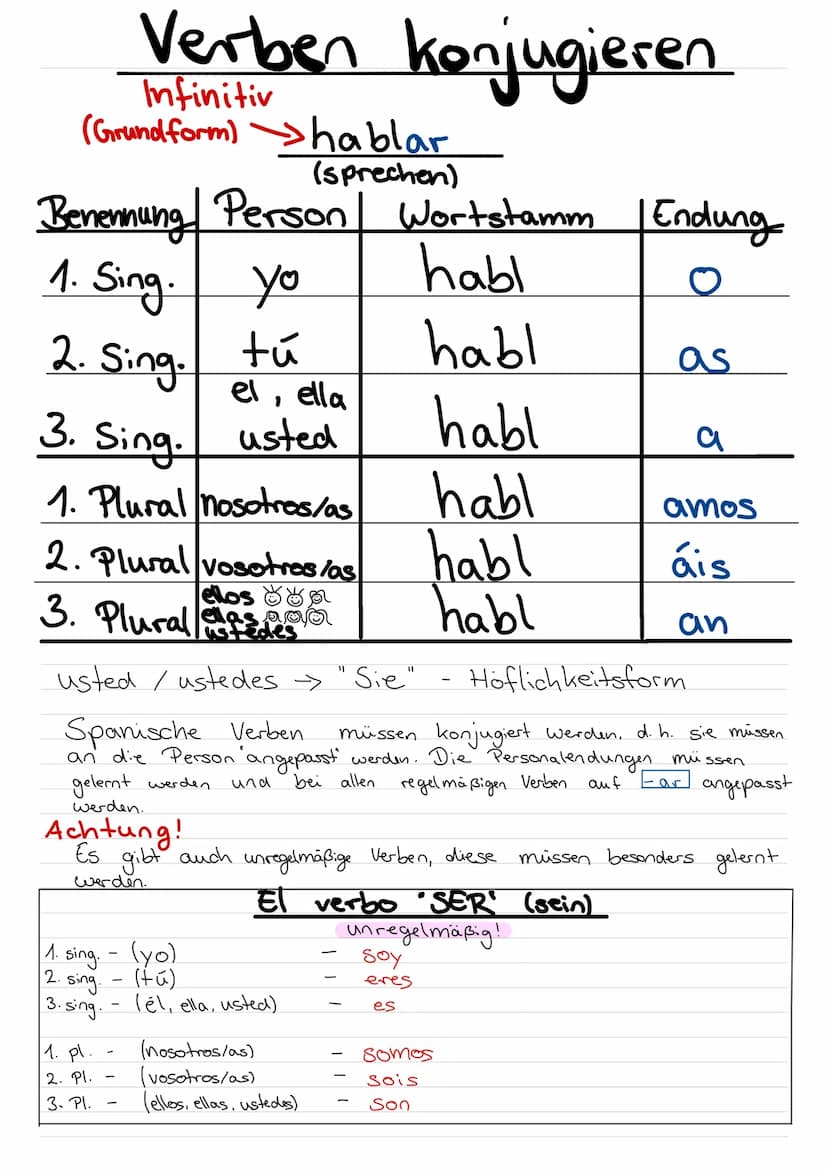 Verben konjugieren
Infinitiv
(Grundform) → hablar
(sprechen)
Benennung Person Wortstamm Endung
1. Sing. yo habl o
2. Sing. tú habl as
el, ella
3. Sing. usted habl a
1. Plural nosotros/as habl amos
2. Plural vosotros/as habl áis
ellos
3. Plural ellas habl an
ustedes
usted / ustedes → "Sie" - Höflichkeitsform
Spanische Verben müssen konjugiert werden, d.h. sie müssen
an die Person "angepasst" werden. Die Personalendungen müssen
gelernt werden und bei allen regelmäßigen Verben auf -ar angepasst
werden.
Achtung!
Es gibt auch unregelmäßige Verben, diese müssen besonders gelernt
werden.
El verbo 'SER' (sein)
unregelmäßig!
1. sing. - (yo) - soy
2. sing. - (tú) - eres
3. sing. - (él, ella, usted) - es
1. pl. - (nosotros/as) - somos
2. Pl. - (vosotros/as) - sois
3. Pl. - (ellos, ellas, ustedes) - son